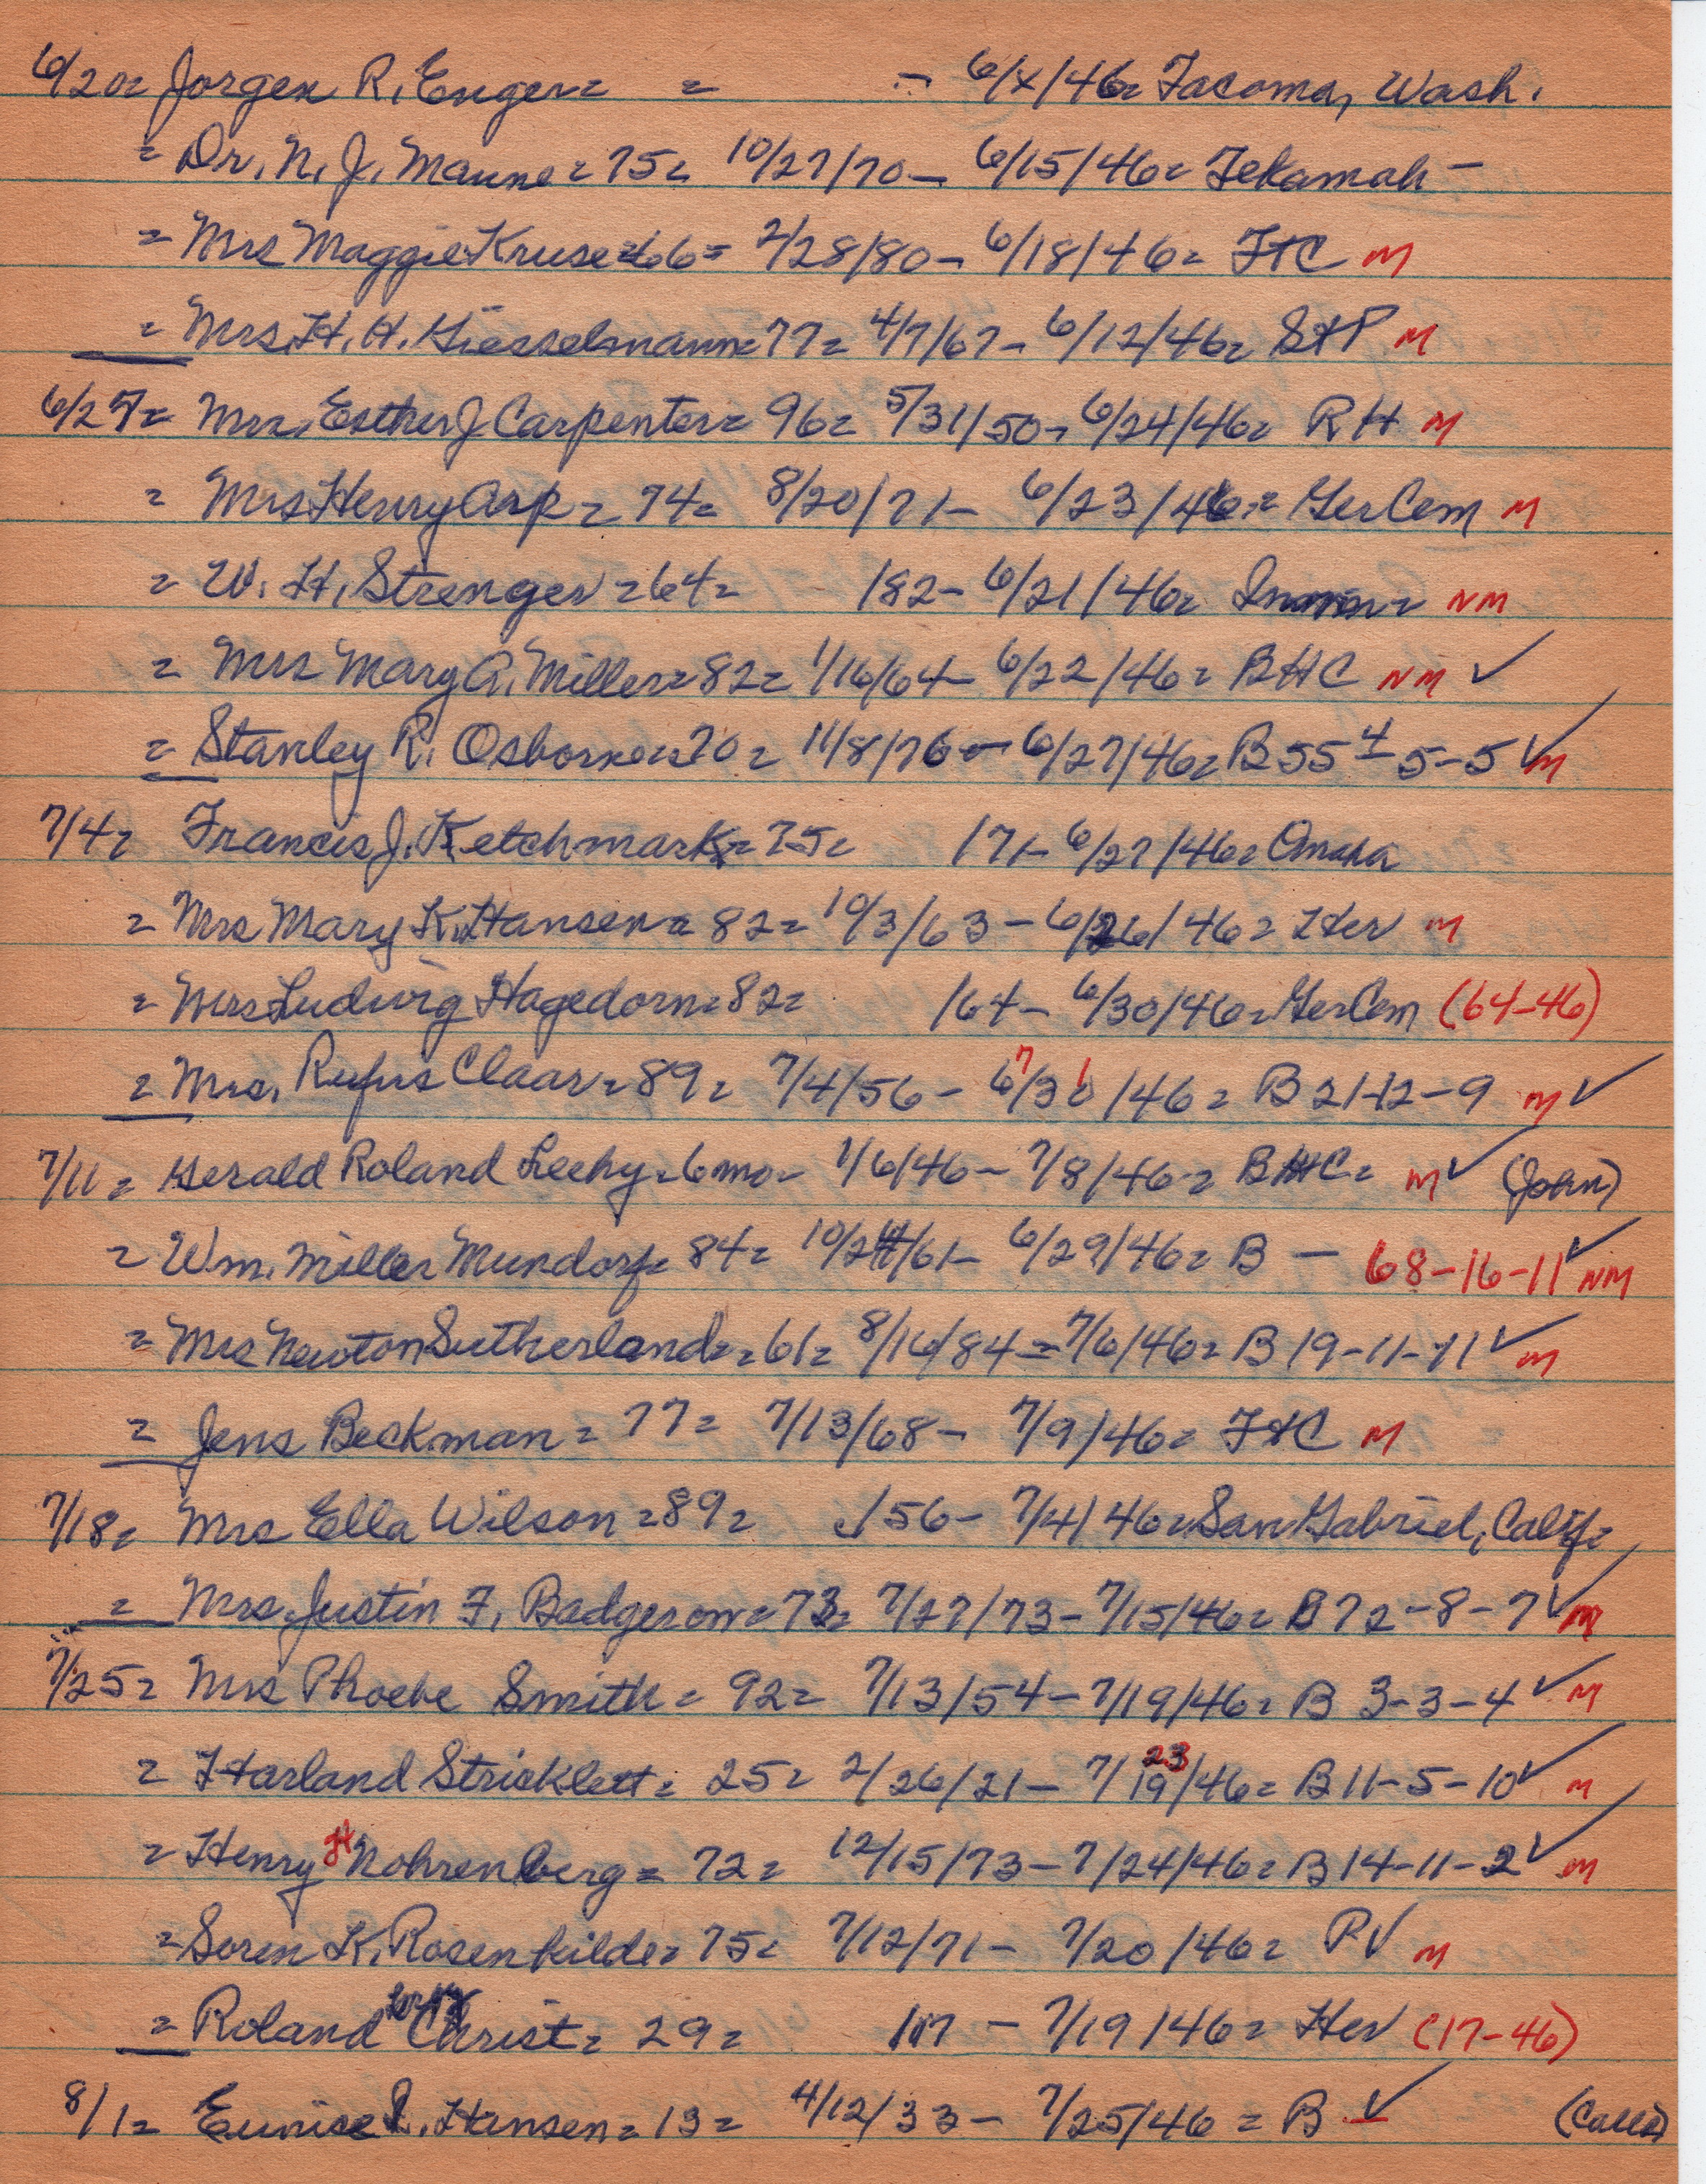 6/20= Jorgen R. Enger= = - 6/x/46= Tacoma, Wash.
= Dr. N. J. Maune= 75= 10/27/70- 6/15/46= Tekamah -
= Mrs Maggie Kruse=66= 2/28/80- 6/18/46= FtC M
= Mrs. H. H. Giesselmann=77= 4/7/67- 6/12/46= StP M
6/27= Mrs. Esther J Carpenter= 96= 5/31/50- 6/24/46= RH M
= Mrs Henry Arp= 74= 8/20/71- 6/23/46= GerCem M
= W. H. Strenger=64= 182- 6/21/46= NM
= Mrs Mary A. Miller=82= 1/16/64- 6/22/46= BHC NM ✓
= Stanley R. Osborne=70= 11/8/76- 6/27/46= B 55 4 5-5 ✓ M
7/4= Francis J. Ketchmark= 75= 171- 6/27/46= Omaha
= Mrs Mary K. Hansen= 82= 10/3/63- 6/26/46= Her M
= Mrs Ludwig Hagedorn=82= 164- 6/30/46= GerCem (64-46)
= Mrs. Rufus Claar=89= 7/4/56- 6/30/46= B 21-12-9 M ✓
7/11= Gerald Roland Leehy=6mo= 1/6/46- 7/8/46= BHC= M ✓ (John)
= Wm. Miller Mundorf= 84= 10/24/61- 6/29/46= B - 68-16-11 ✓ NM
= Mrs Newton Sutherland==61= 8/16/84=7/6/46= B 19-11-11 ✓ M
= Jens Beckman= 77= 7/13/68- 7/9/46= FtC M
7/18= Mrs Ella Wilson=89= /56- 7/4/46= San Gabriel, Calif=
= Mrs. Justin F. Badgerow= 73= 7/27/73- 7/15/46= B 72-8-7 ✓ M
7/25= Mrs Phoebe Smith= 92= 7/13/54- 7/19/46= B 3-3-4 ✓ M
= Harland Stricklett= 25= 2/26/21- 7/19/46= 23 B 11-5-10 ✓ M
= Henry H Nohrenberg= 72= 12/15/73- 7/24/46= B 14-11-2 ✓ M
= Soren K. Rosenkilde= 75= 7/12/71- 7/20/46= RV M
= Roland Christ= 29= 117 - 7/19/46= Her (17-46)
8/1= Eunice L. Hansen= 13= 4/12/33- 7/25/46= B ✓ (Calls)